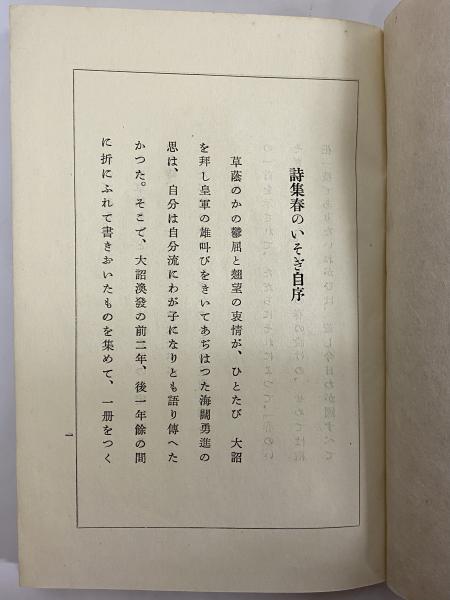 詩集春のいそぎ自序
草蔭のかの鬱屈と翹望の衷情が、ひとたび　大詔
を拜し皇軍の雄叫びをきいてあぢはつた海闊勇進の
思は、自分は自分流にわが子になりとも語り傳へた
かつた。そこで、大詔渙發の前二年、後一年餘の間
に折にふれて書きおいたものを集めて、一册をつく
一